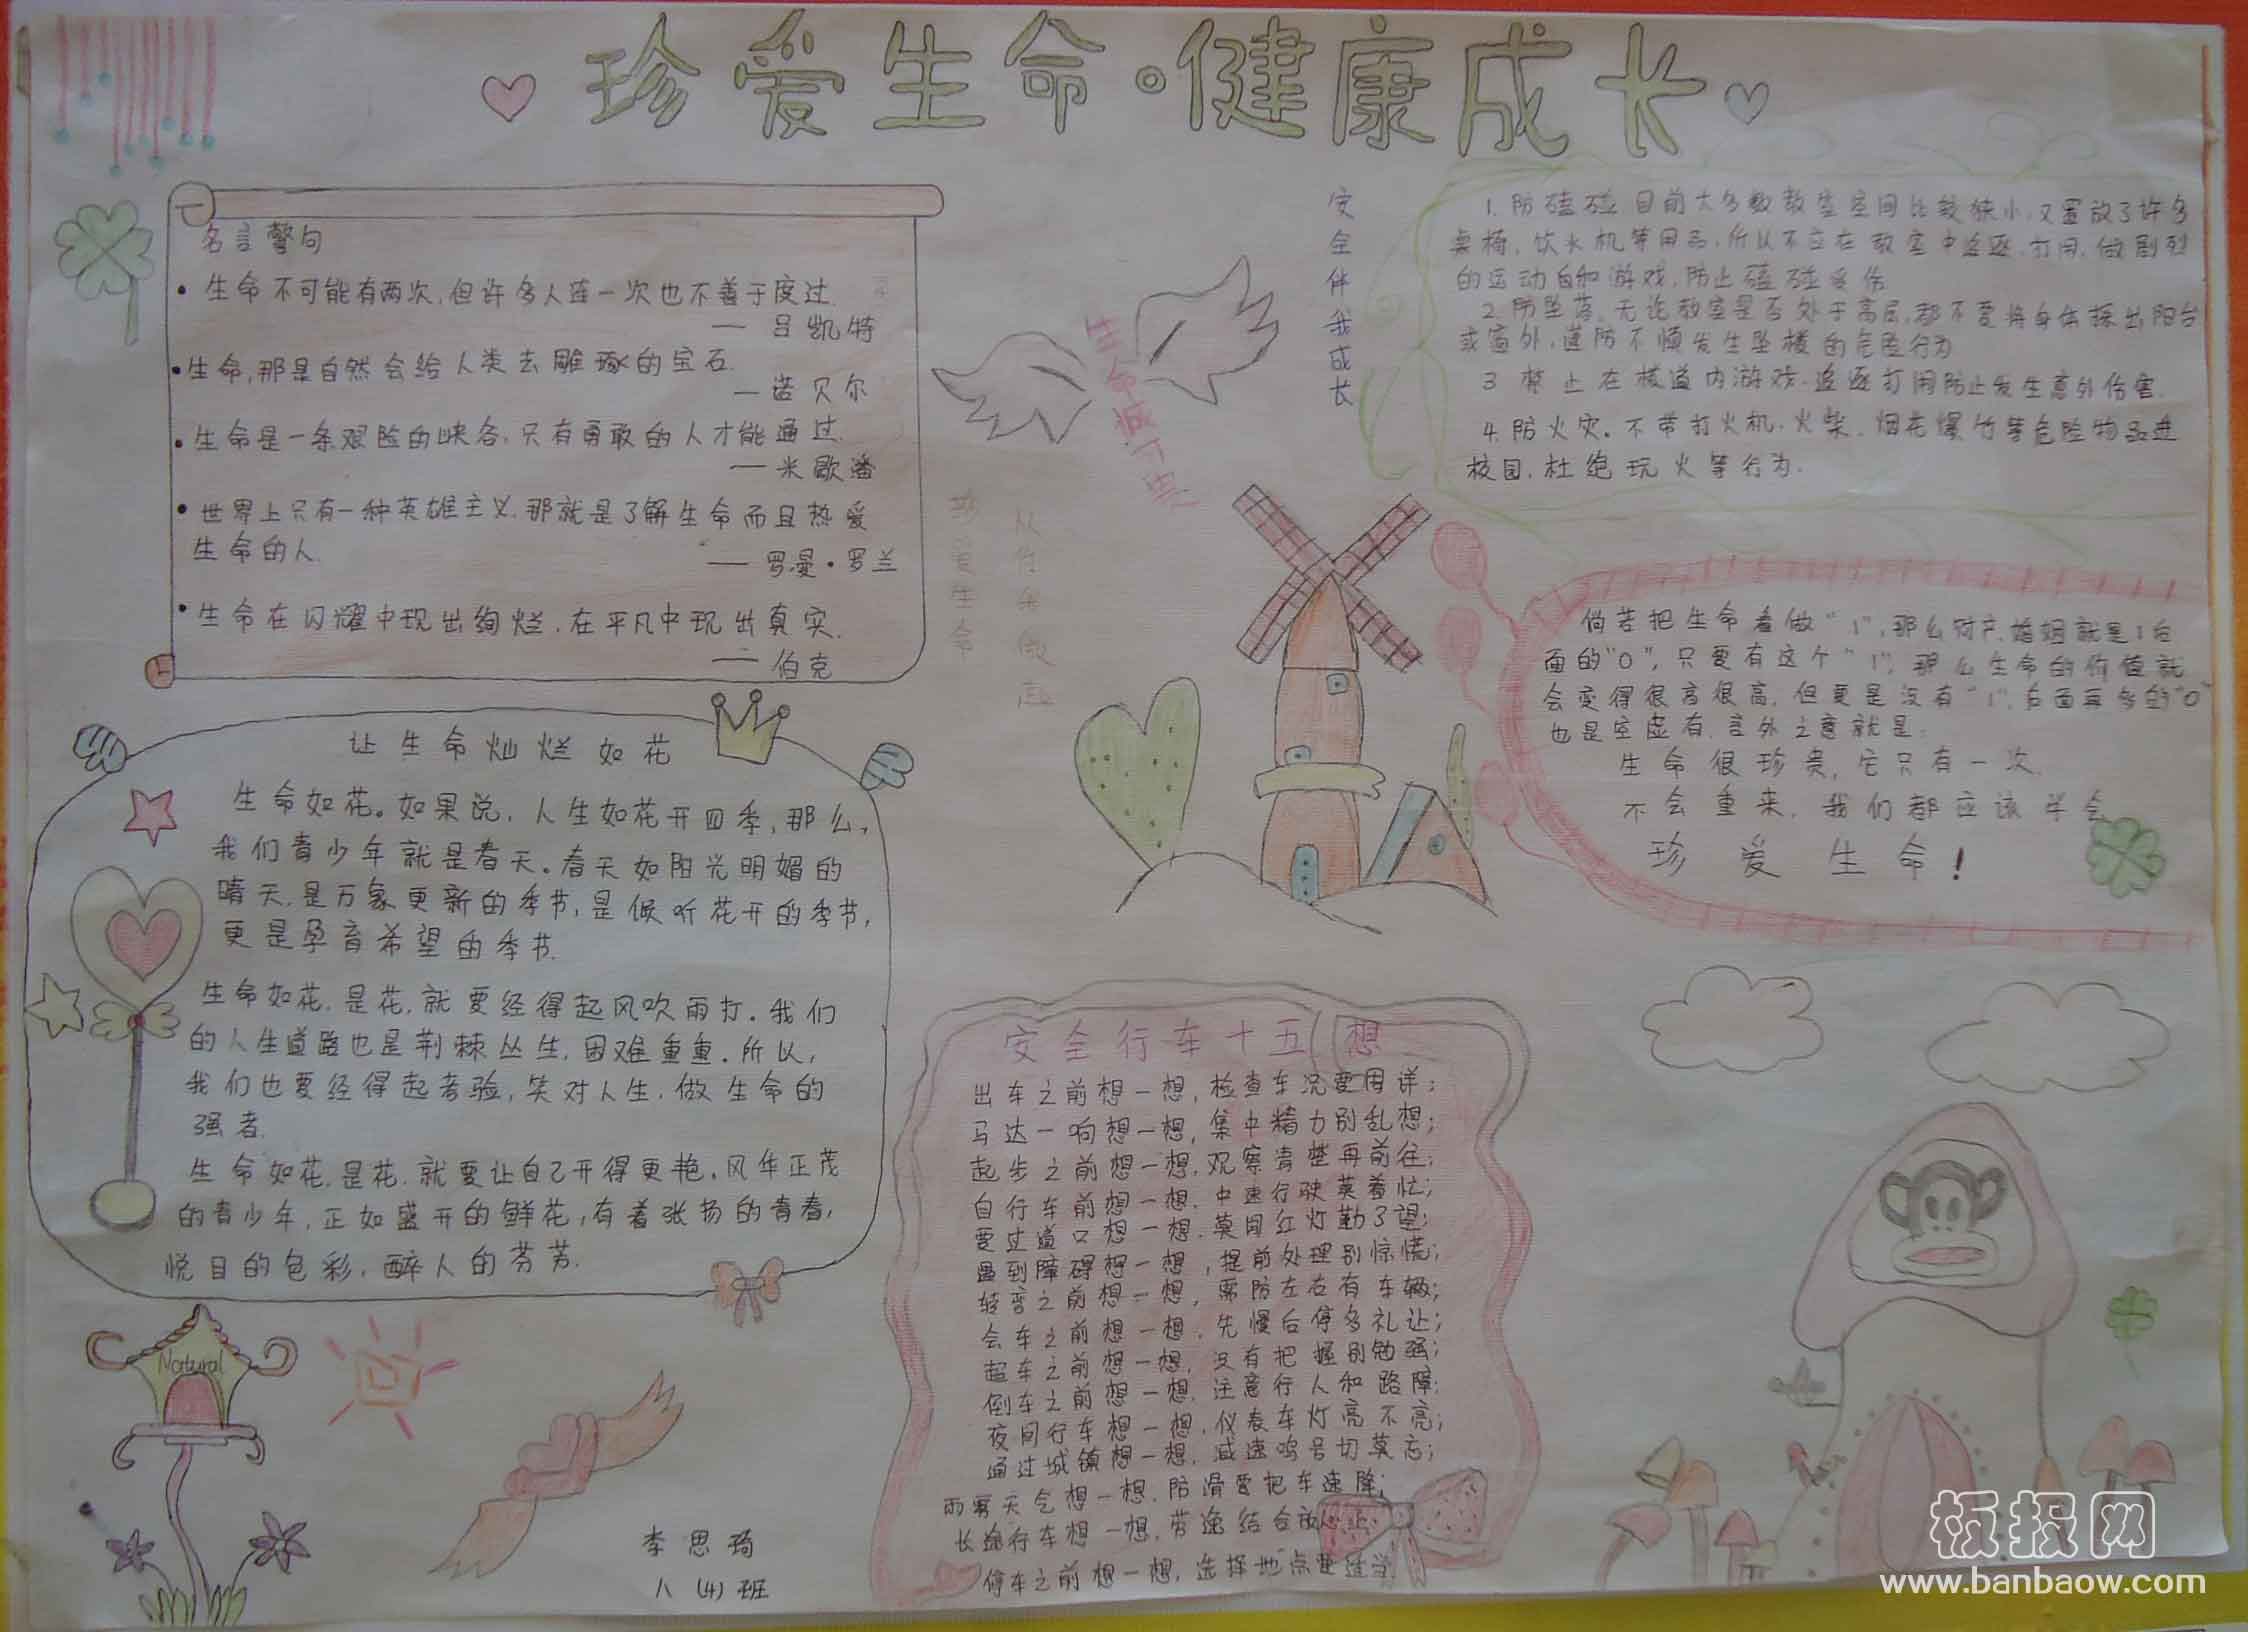 珍爱生命·健康成长
名言警句
生命不可能有两次,但许多人连一次也不善于度过.
— 吕凯特
生命,那是自然会给人类去雕琢的宝石.
— 诺贝尔
生命是一条艰险的峡谷,只有勇敢的人才能通过.
— 米歇潘
世界上只有一种英雄主义,那就是了解生命而且热爱
生命的人.
— 罗曼·罗兰
生命在闪耀中现出绚烂,在平凡中现出真实.
— 伯克
让生命灿烂如花
生命如花。如果说,人生如花开四季,那么,
我们青少年就是春天。春天如阳光明媚的
晴天,是万象更新的季节,是倾听花开的季节,
更是孕育希望的季节.
生命如花,是花,就要经得起风吹雨打。我们
的人生道路也是荆棘丛生,困难重重.所以,
我们也要经得起考验,笑对人生,做生命的
强者.
生命如花,是花,就要让自己开得更艳。风华正茂
的青少年,正如盛开的鲜花,有着张扬的青春,
悦目的色彩,醉人的芬芳.
Natural
李思琦
八(4)班
珍爱生命
安全伴我成长
1.防磕碰.目前大多数教室空间比较狭小,又置放了许多
桌椅、饮水机等用品,所以不应在教室中追逐、打闹,做剧烈
的运动自和游戏,防止磕碰受伤
2.防坠落.无论教室是否处于高层,都不要将身体探出阳台
或窗外,谨防不慎发生坠楼的危险行为
3 禁止在楼道内游戏.追逐打闹防止发生意外伤害.
4.防火灾。不带打火机、火柴、烟花爆竹等危险物品进
校园,杜绝玩火等行为.
倘若把生命看做"1",那么财产、婚姻就是1后
面的"0",只要有这个"1",那么生命的价值就
会变得很高很高,但要是没有"1",后面再多的"0"
也是空虚有,言外之意就是:
生命很珍贵,它只有一次.
不会重来,我们都应该学会
珍爱生命!
安全行车十五想
出车之前想一想,检查车况要周详;
马达一响想一想,集中精力别乱想;
起步之前想一想,观察清楚再前往;
自行车前想一想,中速行驶莫着忙;
要过道口想一想,莫闯红灯勤了望;
遇到障碍想一想,提前处理别惊慌;
转弯之前想一想,需防左右有车辆;
会车之前想一想,先慢后停多礼让;
超车之前想一想,没有把握别勉强;
倒车之前想一想,注意行人和路障;
夜间行车想一想,仪表车灯亮不亮;
通过城镇想一想,减速鸣号切莫忘;
雨雾天气想一想,防滑要把车速降;
长途行车想一想,劳逸结合放
停车之前想一想,选择地点要适当.
板报网
www.banbaow.com